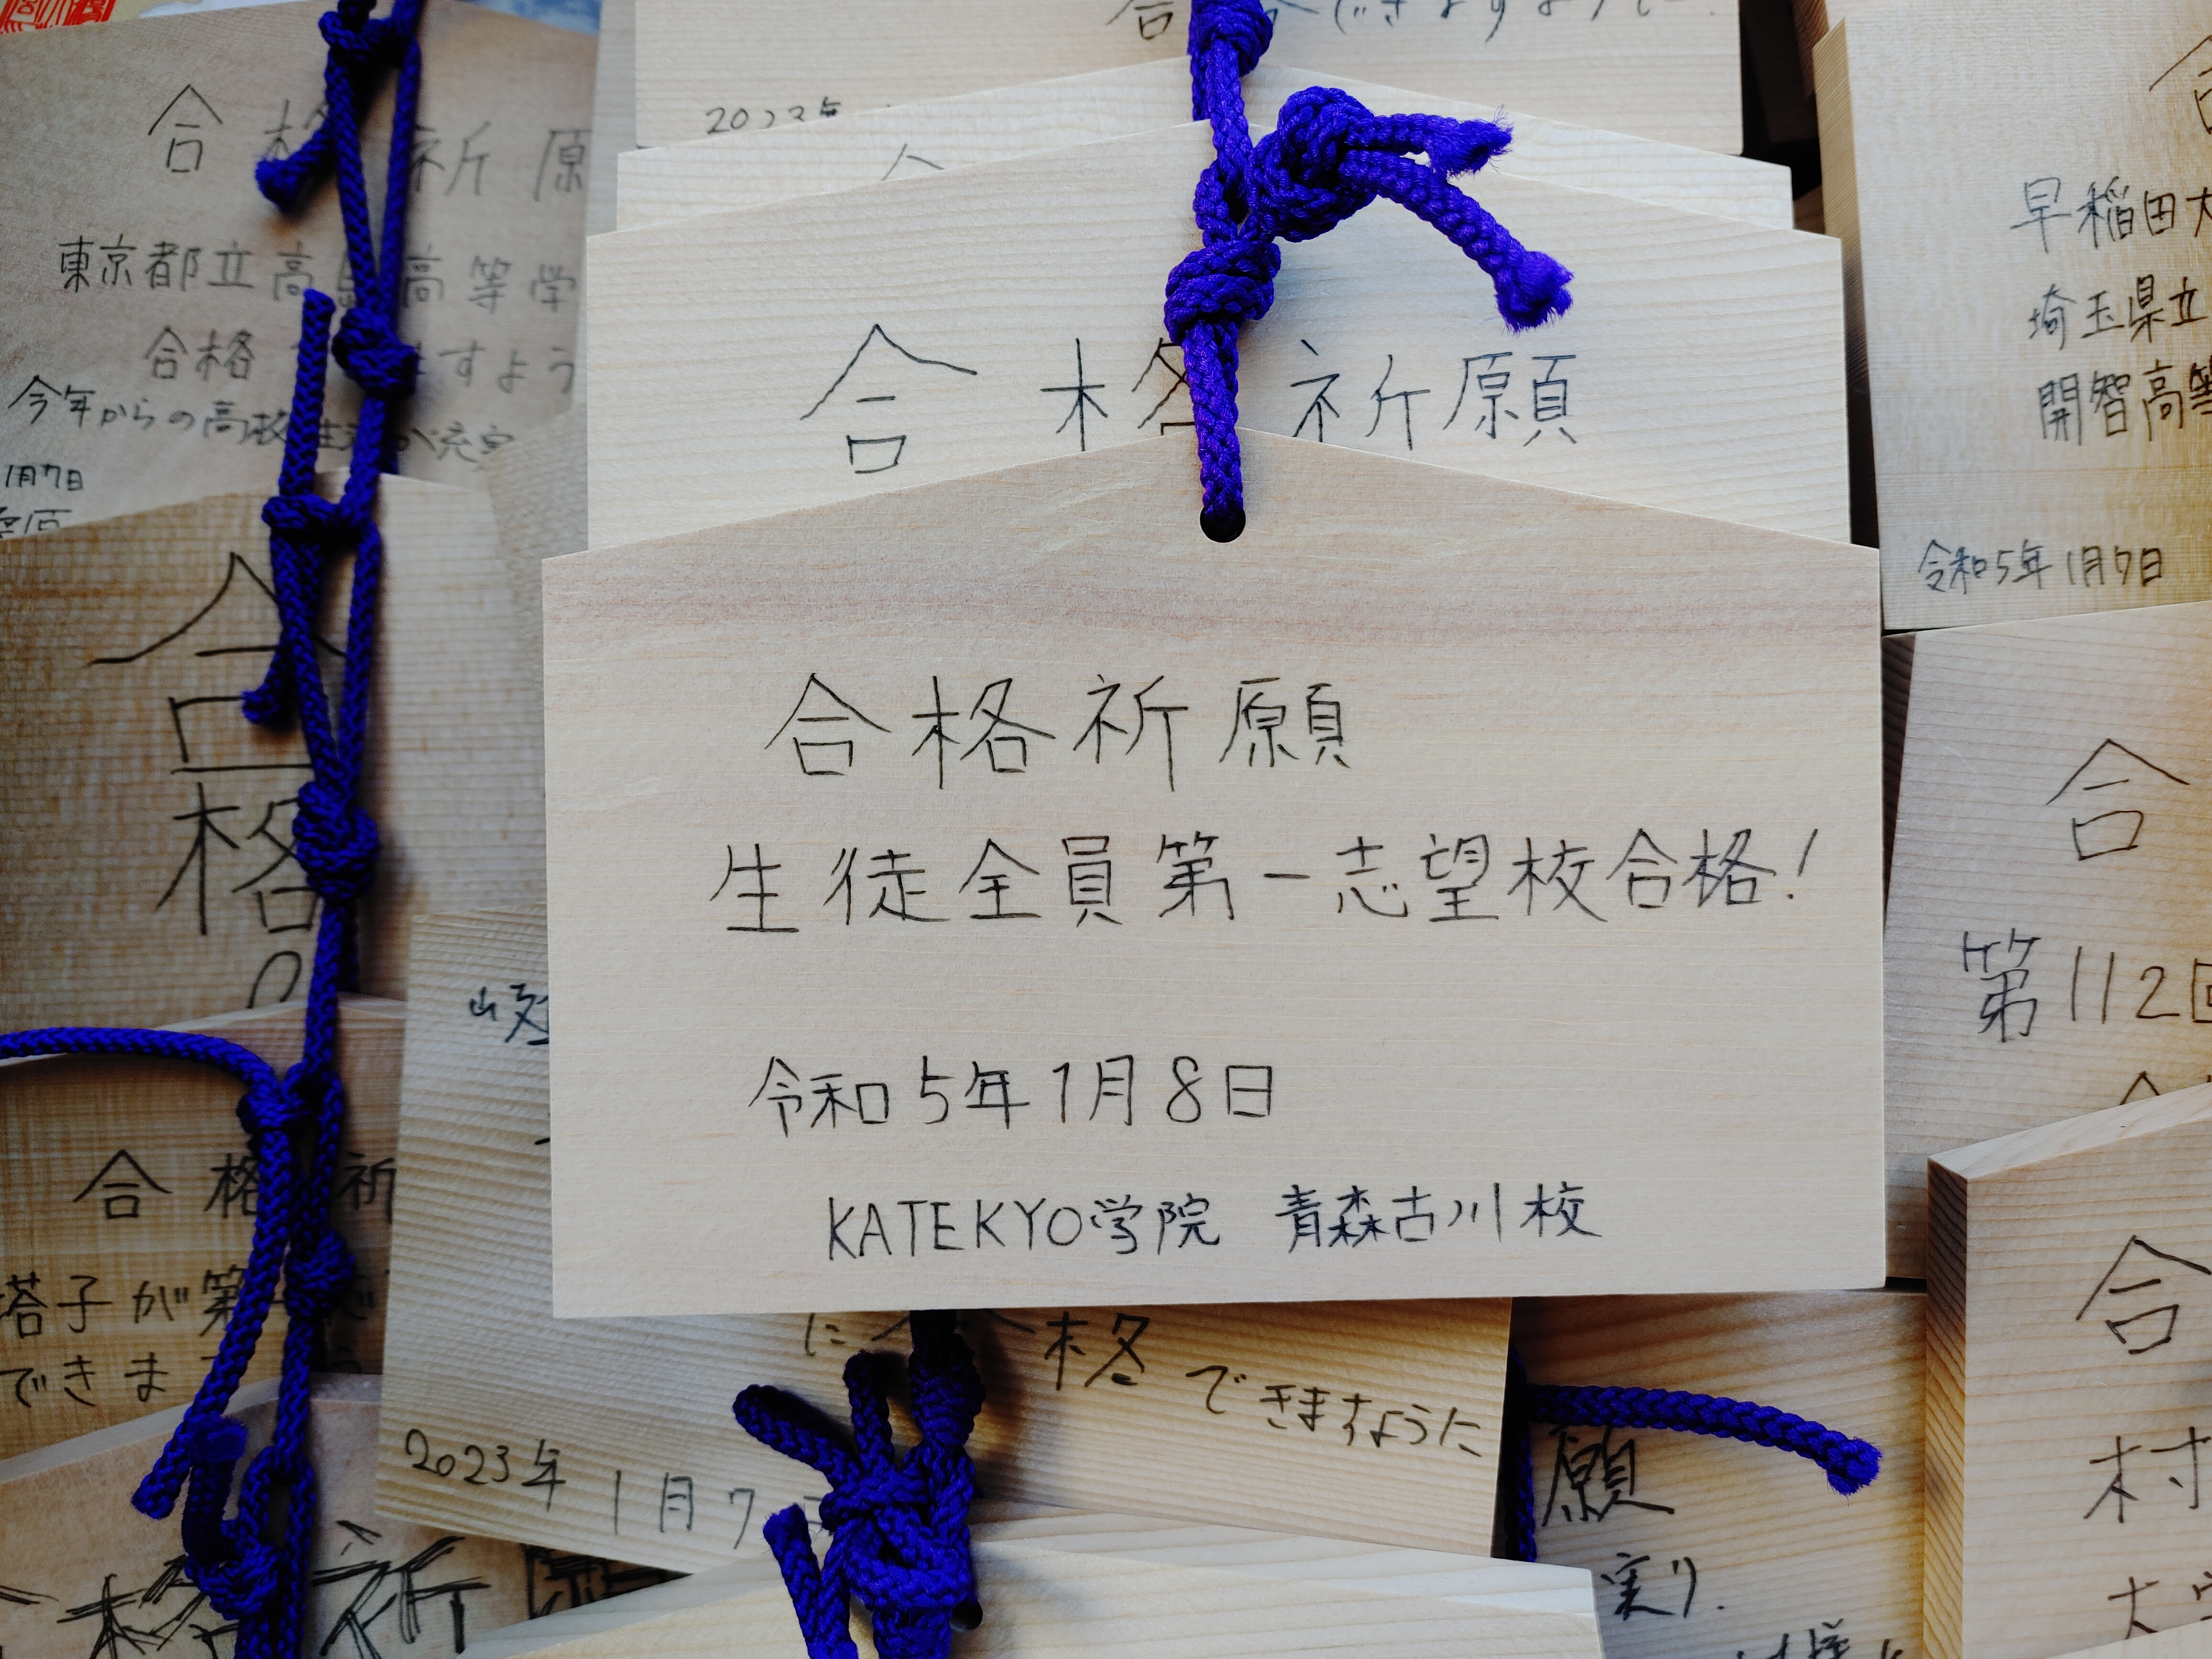 合格祈願
東京都立高島高等学
合格
すよう
今年からの高校
1月7日
2023年
合格祈願
合格祈願
生徒全員第一志望校合格!
令和5年1月8日
KATEKYO学院 青森古川校
早稲田大
埼玉県立
開智高等
令和5年1月7日
合格
の
合
第112回
合格祈
塔子が第一
できま
に合格できますように
2023年1月7
合格祈願
願
実り
合
村
大